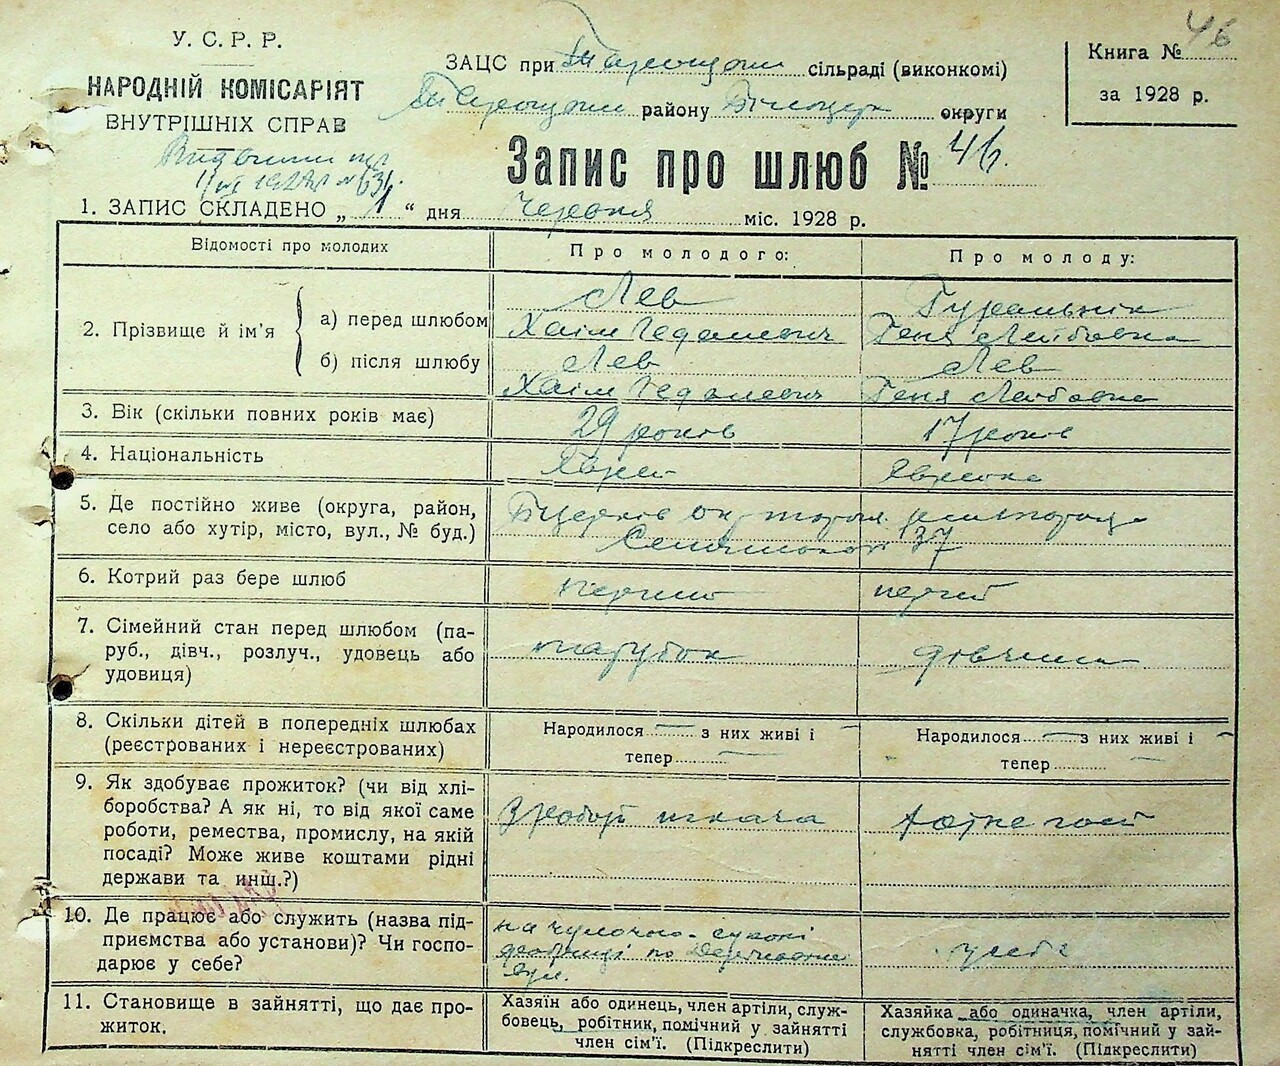 У. С. Р. Р.
НАРОДНІЙ КОМІСАРІЯТ
ВНУТРІШНІХ СПРАВ
ЗАЦС при сільраді (виконкомі)
району округи
Книга № 46
за 1928 р.
Запис про шлюб № 46.
1. ЗАПИС СКЛАДЕНО „ 1 “ дня Червня міс. 1928 р.
Відомості про молодих
Про молодого:
Про молоду:
2. Прізвище й ім’я
а) перед шлюбом
Лев
Хаім Гедалевич
Гуральнік
Геня Лейбовна
б) після шлюбу
Лев
Хаім Гедалевич
Лев
Геня Лейбовна
3. Вік (скільки повних років має)
29 років
17 років
4. Національність
Єврей
Єврейка
5. Де постійно живе (округа, район,
село або хутір, місто, вул., № буд.)
37
6. Котрий раз бере шлюб
перший
перший
7. Сімейний стан перед шлюбом (па-
руб., дівч., розлуч., удовець або
удовиця)
парубок
дівчина
8. Скільки дітей в попередніх шлюбах
(реєстрованих і нереєстрованих)
Народилося — з них живі і —
тепер —
Народилося — з них живі і —
тепер
9. Як здобуває прожиток? (чи від хлі-
боробства? А як ні, то від якої саме
роботи, ремества, промислу, на якій
посаді? Може живе коштами рідні
держави та инш.?)
З роботи ткача
10. Де працює або служить (назва під-
приємства або установи)? Чи госпо-
дарює у себе?
на чулочно-
по
вул.
11. Становище в зайнятті, що дає про-
житок.
Хазяїн або одинець, член артілі, служ-
бовець, робітник, помічний у зайнятті
член сім’ї. (Підкреслити)
Хазяйка або одиначка, член артілі,
службовка, робітниця, помічний у зай-
нятті член сім’ї. (Підкреслити)